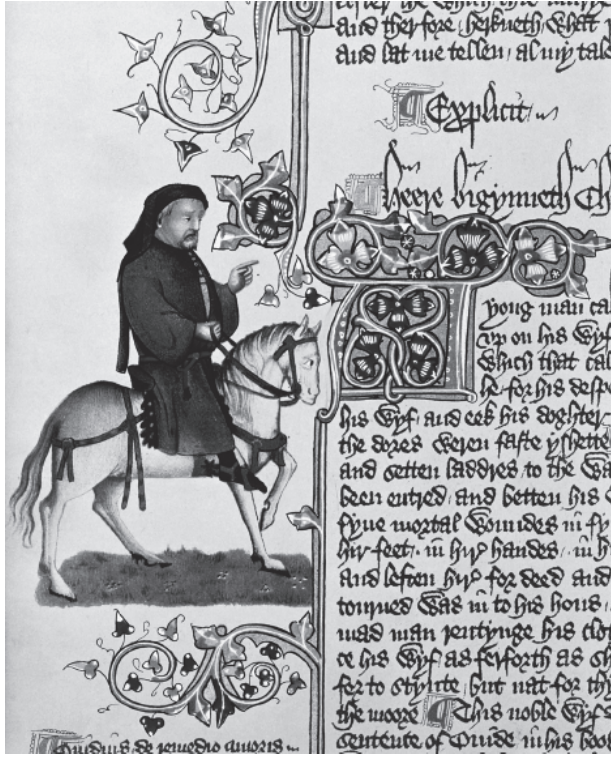 and therfore herkneth what
and lat me tellen al my tale
Explicit
Heere bigynneth Ch
A yong man cal
vp on his wyf
which that cal
he for his desp
his wyf and eek his doghter
the dores weren faste yshette
and setten laddres to the wa
been entred and betten his
fyue mortal woundes in
hir feet in hir handes in h
and leften hir for deed and
tourned was in to his hous
mad man rentynge his clot
ce his wyf as ferforth as
for to stynte but nat for thy
the moore This noble wyf
sentence of Ouide in his boo
Ouidius de remedio amoris